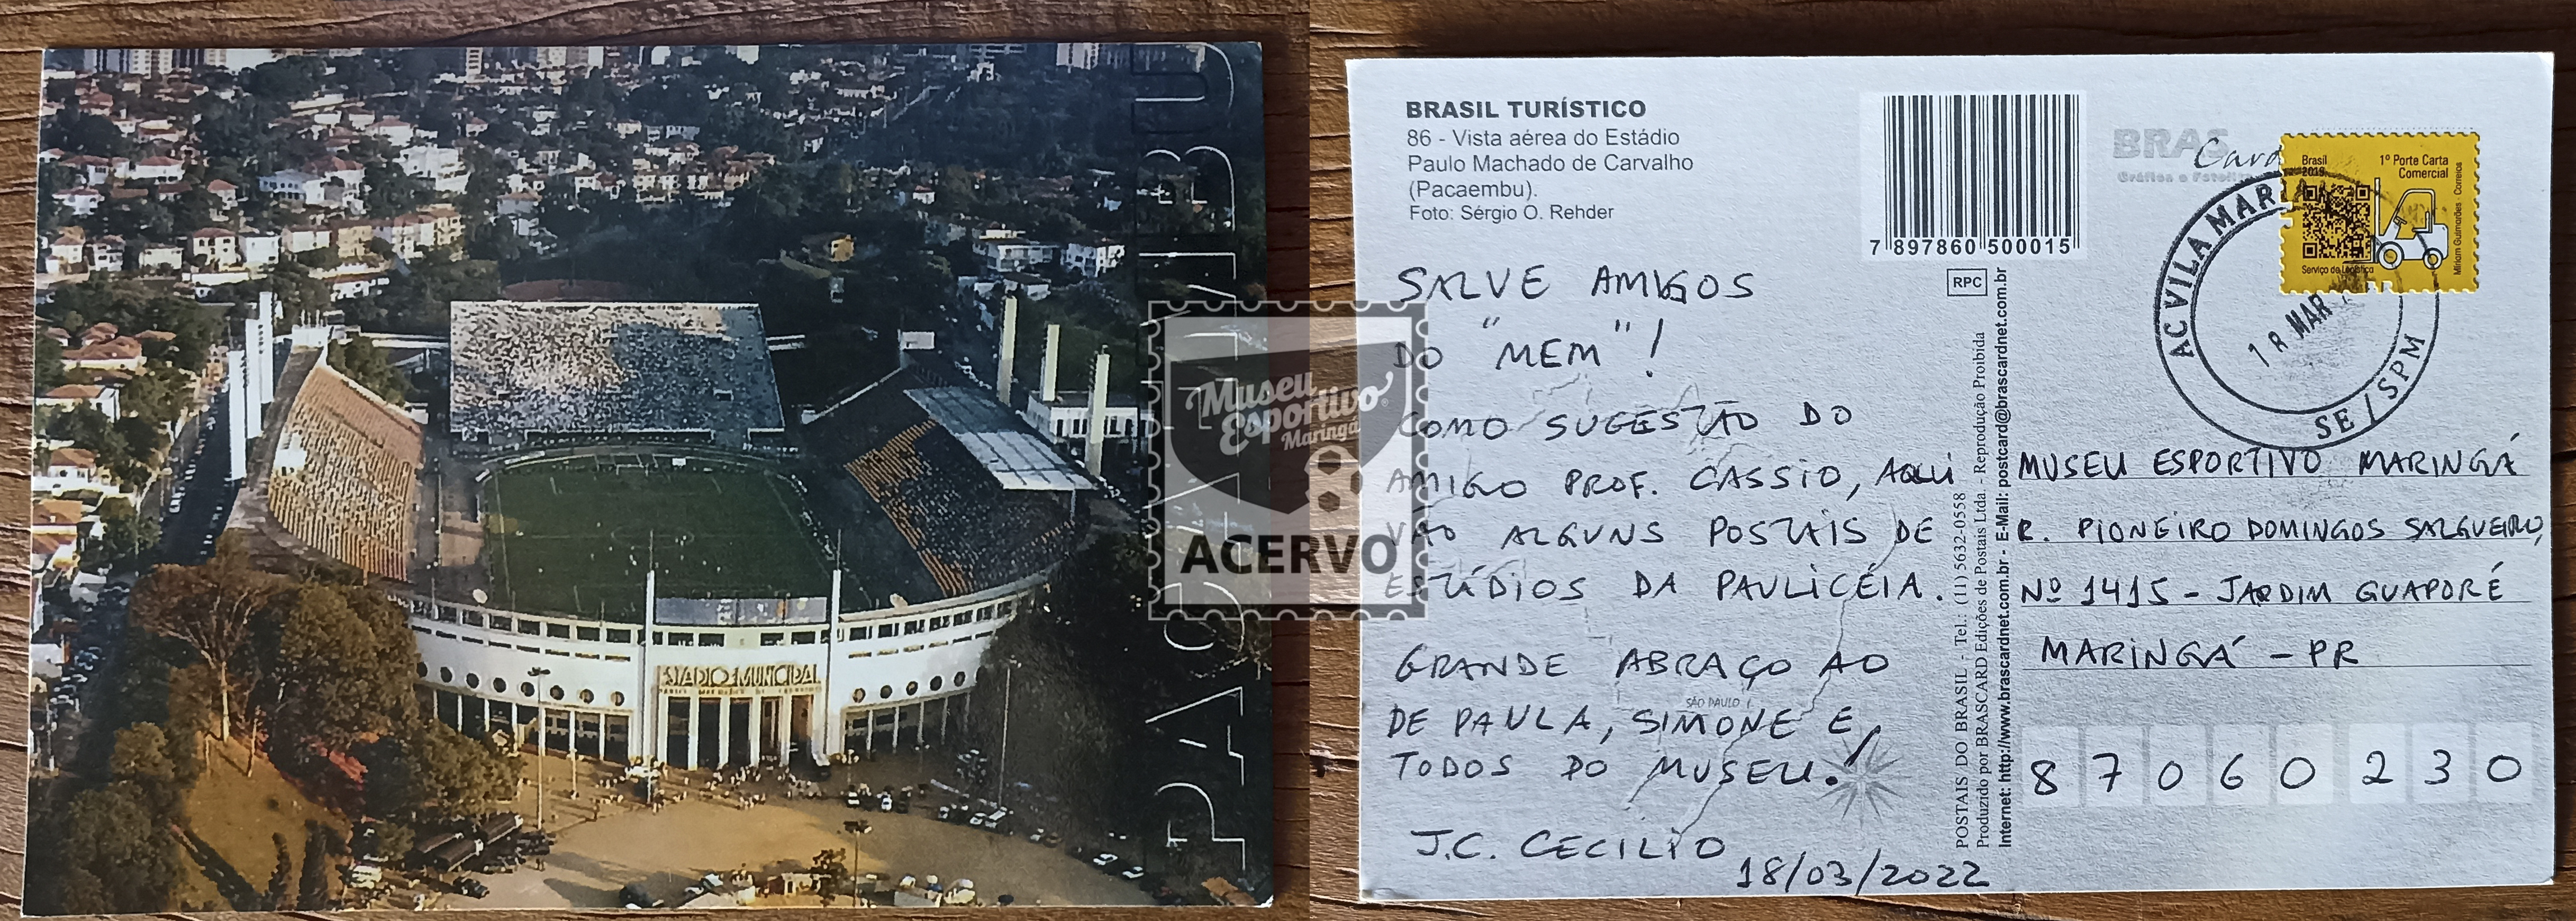 PACAEMBU
ESTADIO MUNICIPAL
Museu
Esportivo
Maringá
ACERVO
BRASIL TURÍSTICO
86 - Vista aérea do Estádio
Paulo Machado de Carvalho
(Pacaembu).
Foto: Sérgio O. Rehder
7 897860 500015
BRAS
Card
Brasil
2019
1º Porte Carta
Comercial
Serviço de Logística
Miriam Guimarães - Correios
AC VILA MAR
18 MAR
SE / SPM
RPC
SALVE AMIGOS
DO "MEM"!
COMO SUGESTÃO DO
AMIGO PROF. CASSIO, AQUI
VÃO ALGUNS POSTAIS DE
ESTÚDIOS DA PAULICÉIA.
GRANDE ABRAÇO AO
DE PAULA, SIMONE E
TODOS DO MUSEU!
J.C. CECILIO
18/03/2022
SÃO PAULO
POSTAIS DO BRASIL - Tel.: (11) 5632-0558
Produzido por BRASCARD Edições de Postais Ltda. - Reprodução Proibida
Internet: http://www.brascardnet.com.br - E-Mail: postcard@brascardnet.com.br
MUSEU ESPORTIVO MARINGÁ
R. PIONEIRO DOMINGOS SALGUEIRO,
Nº 1415 - JARDIM GUAPORÉ
MARINGÁ - PR
8 7 0 6 0 2 3 0